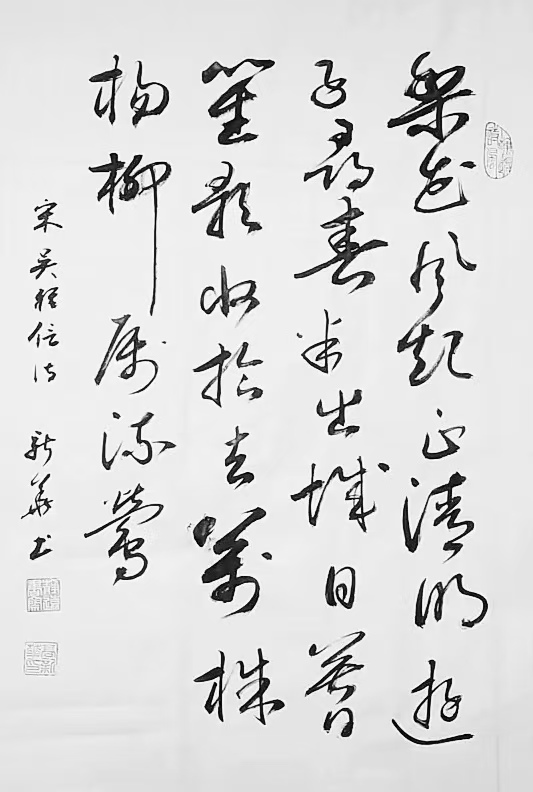 梨花风起正清明遊
子尋春半出城日暮
笙歌收拾去萬株
杨柳属流莺
宋吴惟信诗 新華书